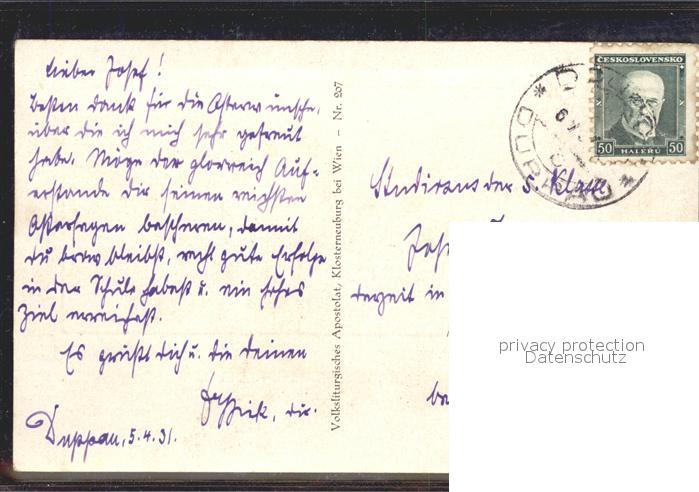 Lieber Josef!
Besten Dank für die Osterwünsche,
über die ich mich sehr gefreut
habe. Möge der glorreich Auf-
erstandene dir seinen reichsten
Ostersegen bescheren, damit
du brav bleibst, recht gute Erfolge
in der Schule habest u. ein hohes
Ziel erreichest.
Es grüßt dich u. die deinen
dir.
Duppau, 5.4.31.
Volksliturgisches Apostolat, Klosterneuburg bei Wien – Nr. 207
ČESKOSLOVENSKO
50 HALÉŘŮ 50
DOUPOV
Studiosus der 5. Klasse
derzeit in
privacy protection
Datenschutz